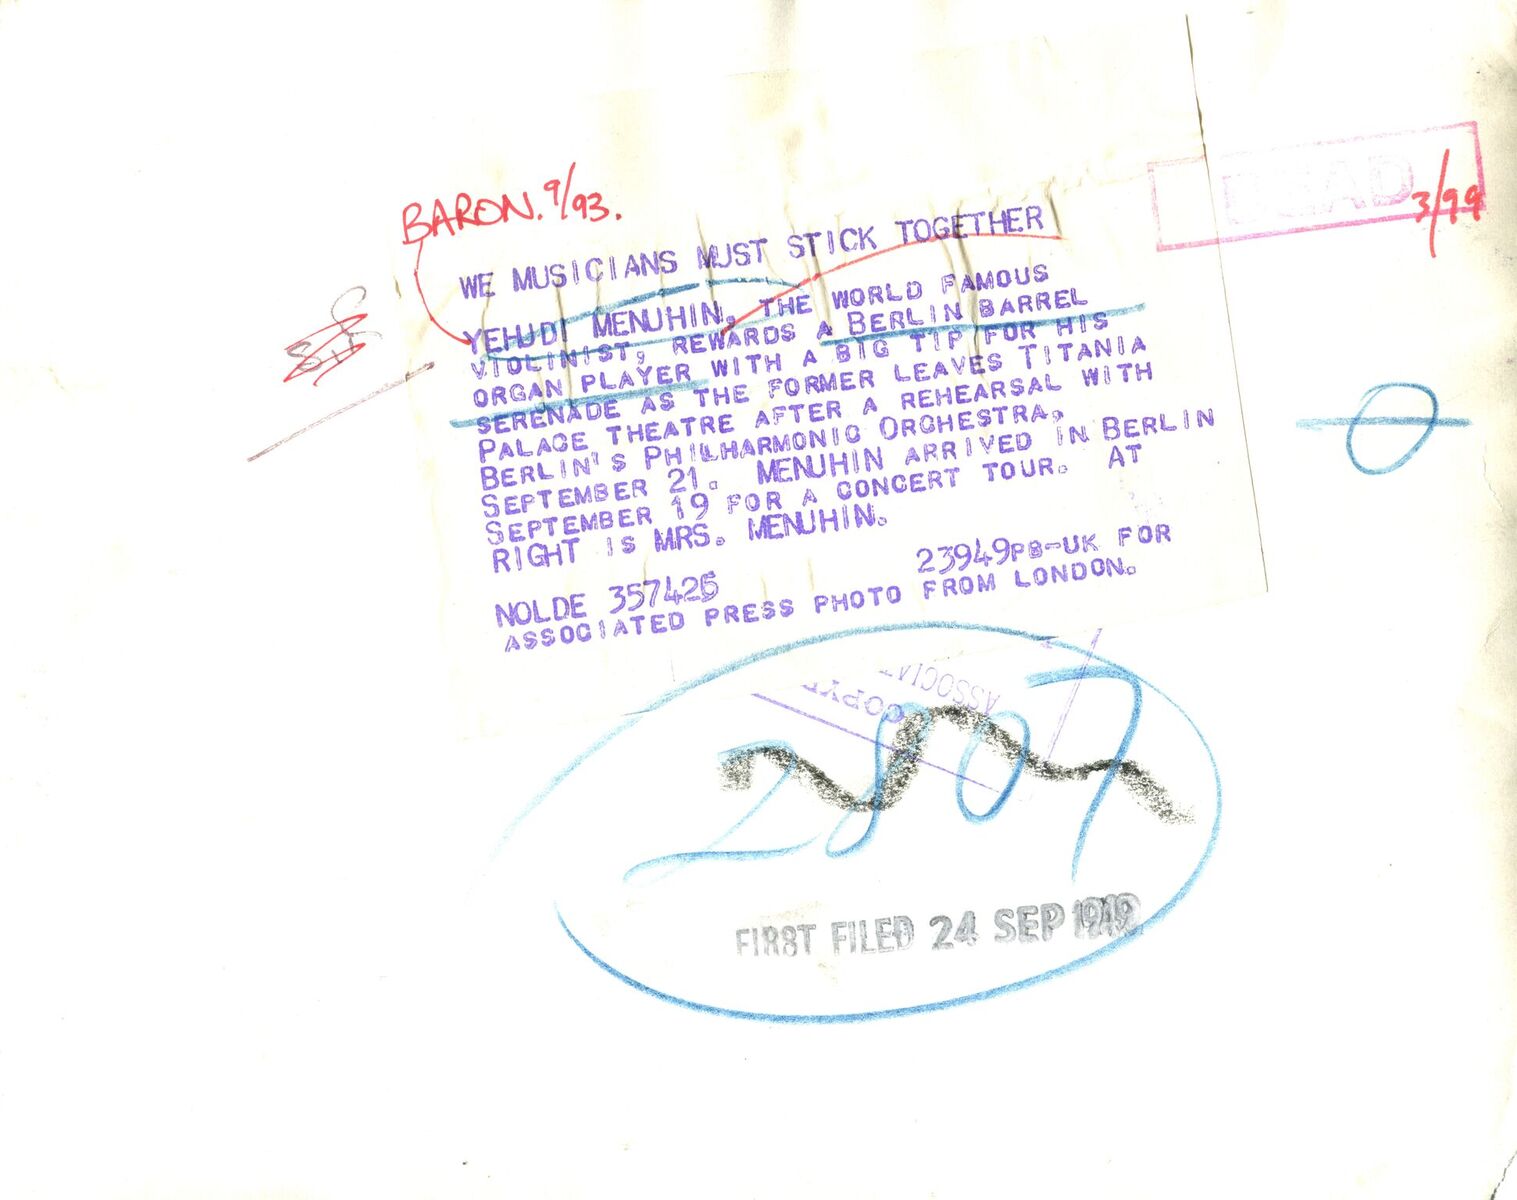 BARON. 9/93.
DEAD
3/99
WE MUSICIANS MUST STICK TOGETHER
YEHUDI MENUHIN, THE WORLD FAMOUS
VIOLINIST, REWARDS A BERLIN BARREL
ORGAN PLAYER WITH A BIG TIP FOR HIS
SERENADE AS THE FORMER LEAVES TITANIA
PALACE THEATRE AFTER A REHEARSAL WITH
BERLIN'S PHILHARMONIC ORCHESTRA,
SEPTEMBER 21. MENUHIN ARRIVED IN BERLIN
SEPTEMBER 19 FOR A CONCERT TOUR. AT
RIGHT IS MRS. MENUHIN.
NOLDE 357425 23949PB-UK FOR
ASSOCIATED PRESS PHOTO FROM LONDON.
2807
FIRST FILED 24 SEP 1949